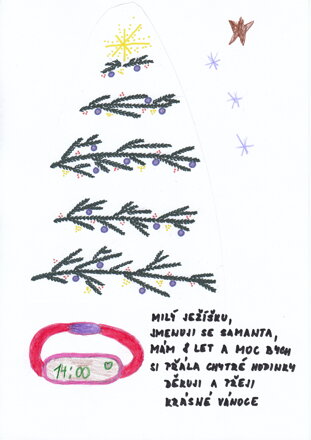 14:00
MILÝ JEŽÍŠKU,
JMENUJI SE SAMANTA,
MÁM 8 LET A MOC BYCH
SI PŘÁLA CHYTRÉ HODINKY
DĚKUJI A PŘEJI
KRÁSNÉ VÁNOCE